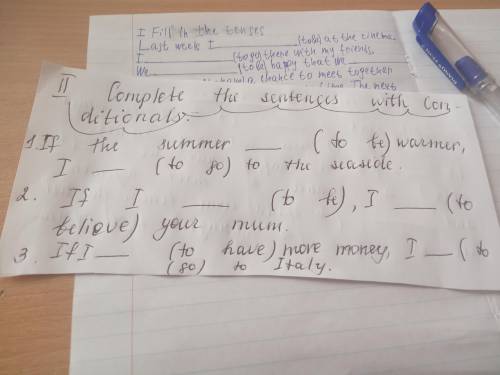 I Fill in the tenses
Last week I ____ (to be) at the cinema.
I ____ (to go) there with my friends.
We ____ (to be) happy that we
a chance to meet together
The next
II Complete the sentences with Con-
ditionals:
1. If the summer ___ (to be) warmer,
I ___ (to go) to the seaside.
2. If I ____ (to be), I ___ (to
believe) your mum.
3. If I ___ (to have) more money, I ___ (to
(go) to Italy.